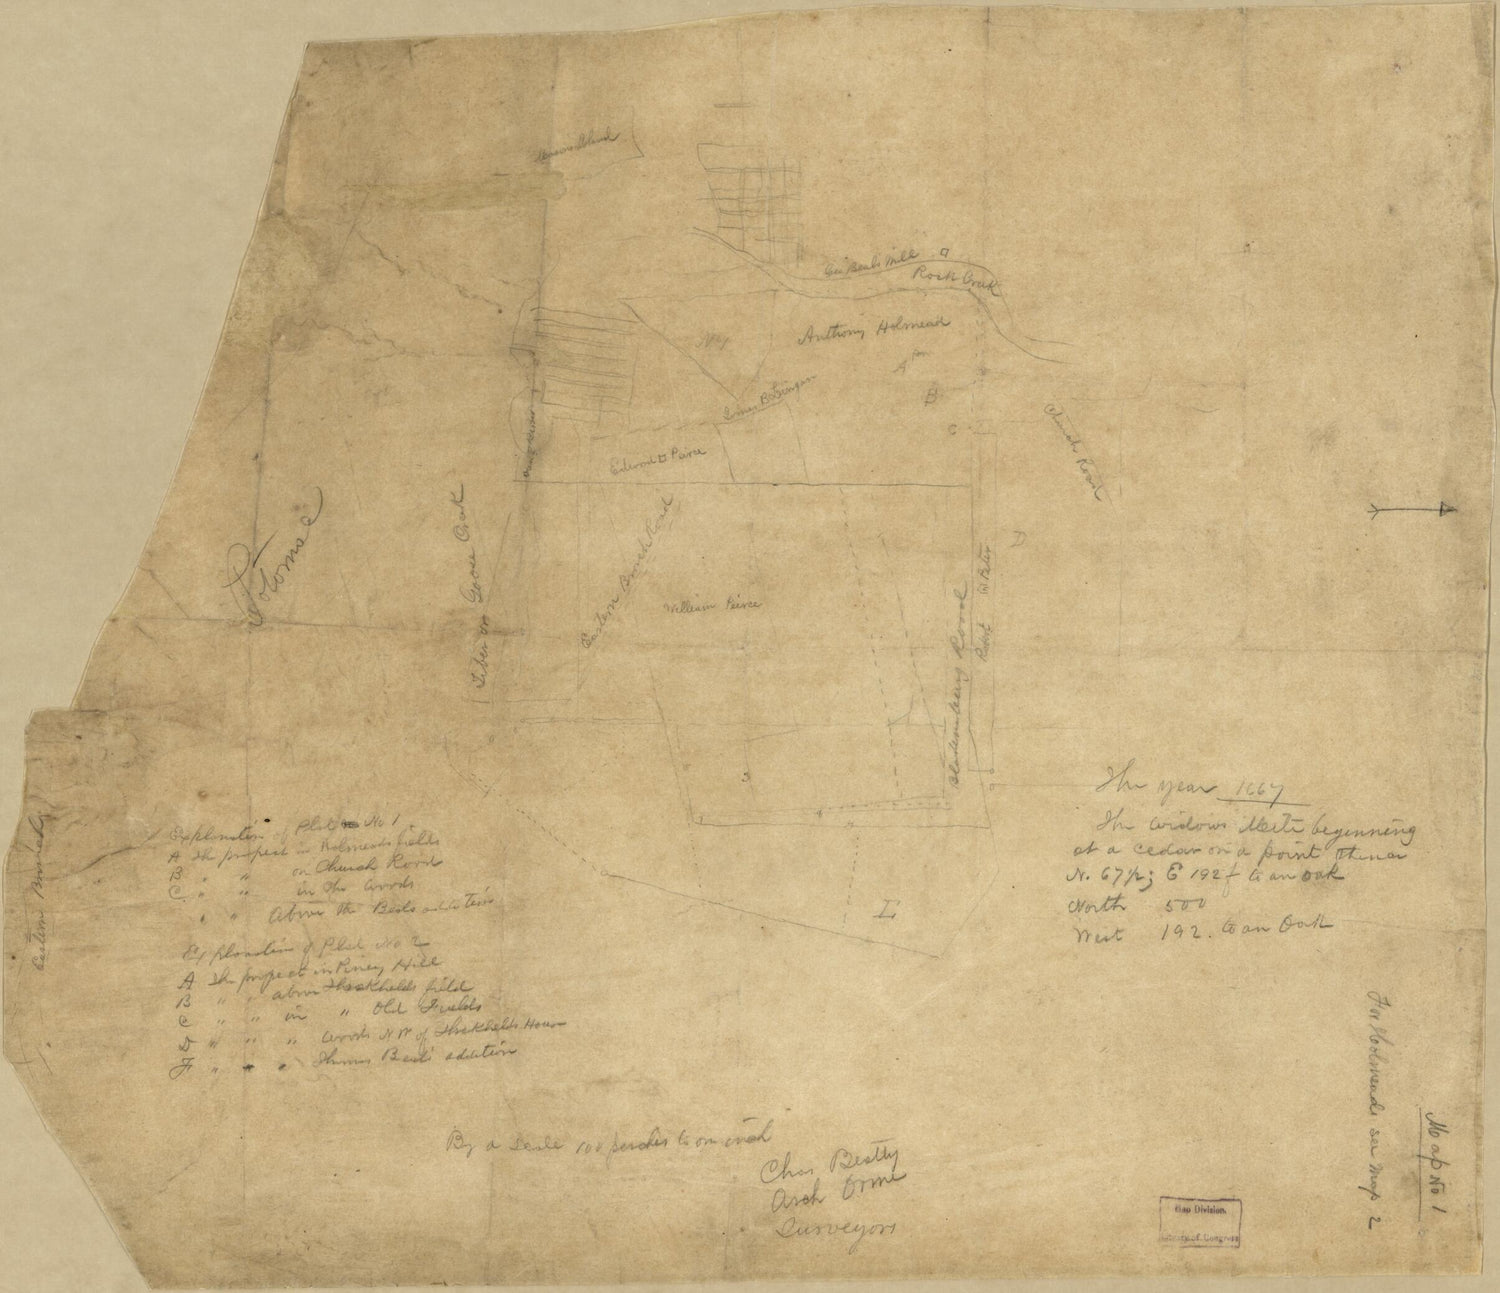 Rock Creek
Anthony Holmead
No 1
B
James B Lingan
Edward Peirce
C
Church Road
Potomac
Tiber or Goose Creek
Eastern Branch Road
William Peirce
Bladensburg Road
Robert Peter
D
E
Eastern Branch
Explanation of Plat No 1
A The prospect in Holmeads fields
B " " on Church Road
C " " in the woods
" " Above the Beals addition
Explanation of Plat No 2
A The prospect in Piney Hill
B " " above Thrkhelds field
C " " in " Old Fields
D " " " woods N W of Thrkhelds House
F " " " Thomas Beals addition
The year 1667
The widows Meite beginning
at a cedar on a point thence
N. 67 p; E 192 f to an oak
North 500
West 192. to an Oak
By a Scale 100 perches to an inch
Chas Beatty
Arch Orme
Surveyors
Map No 1
For Holmeads see Map 2
Map Division,
Library of Congress